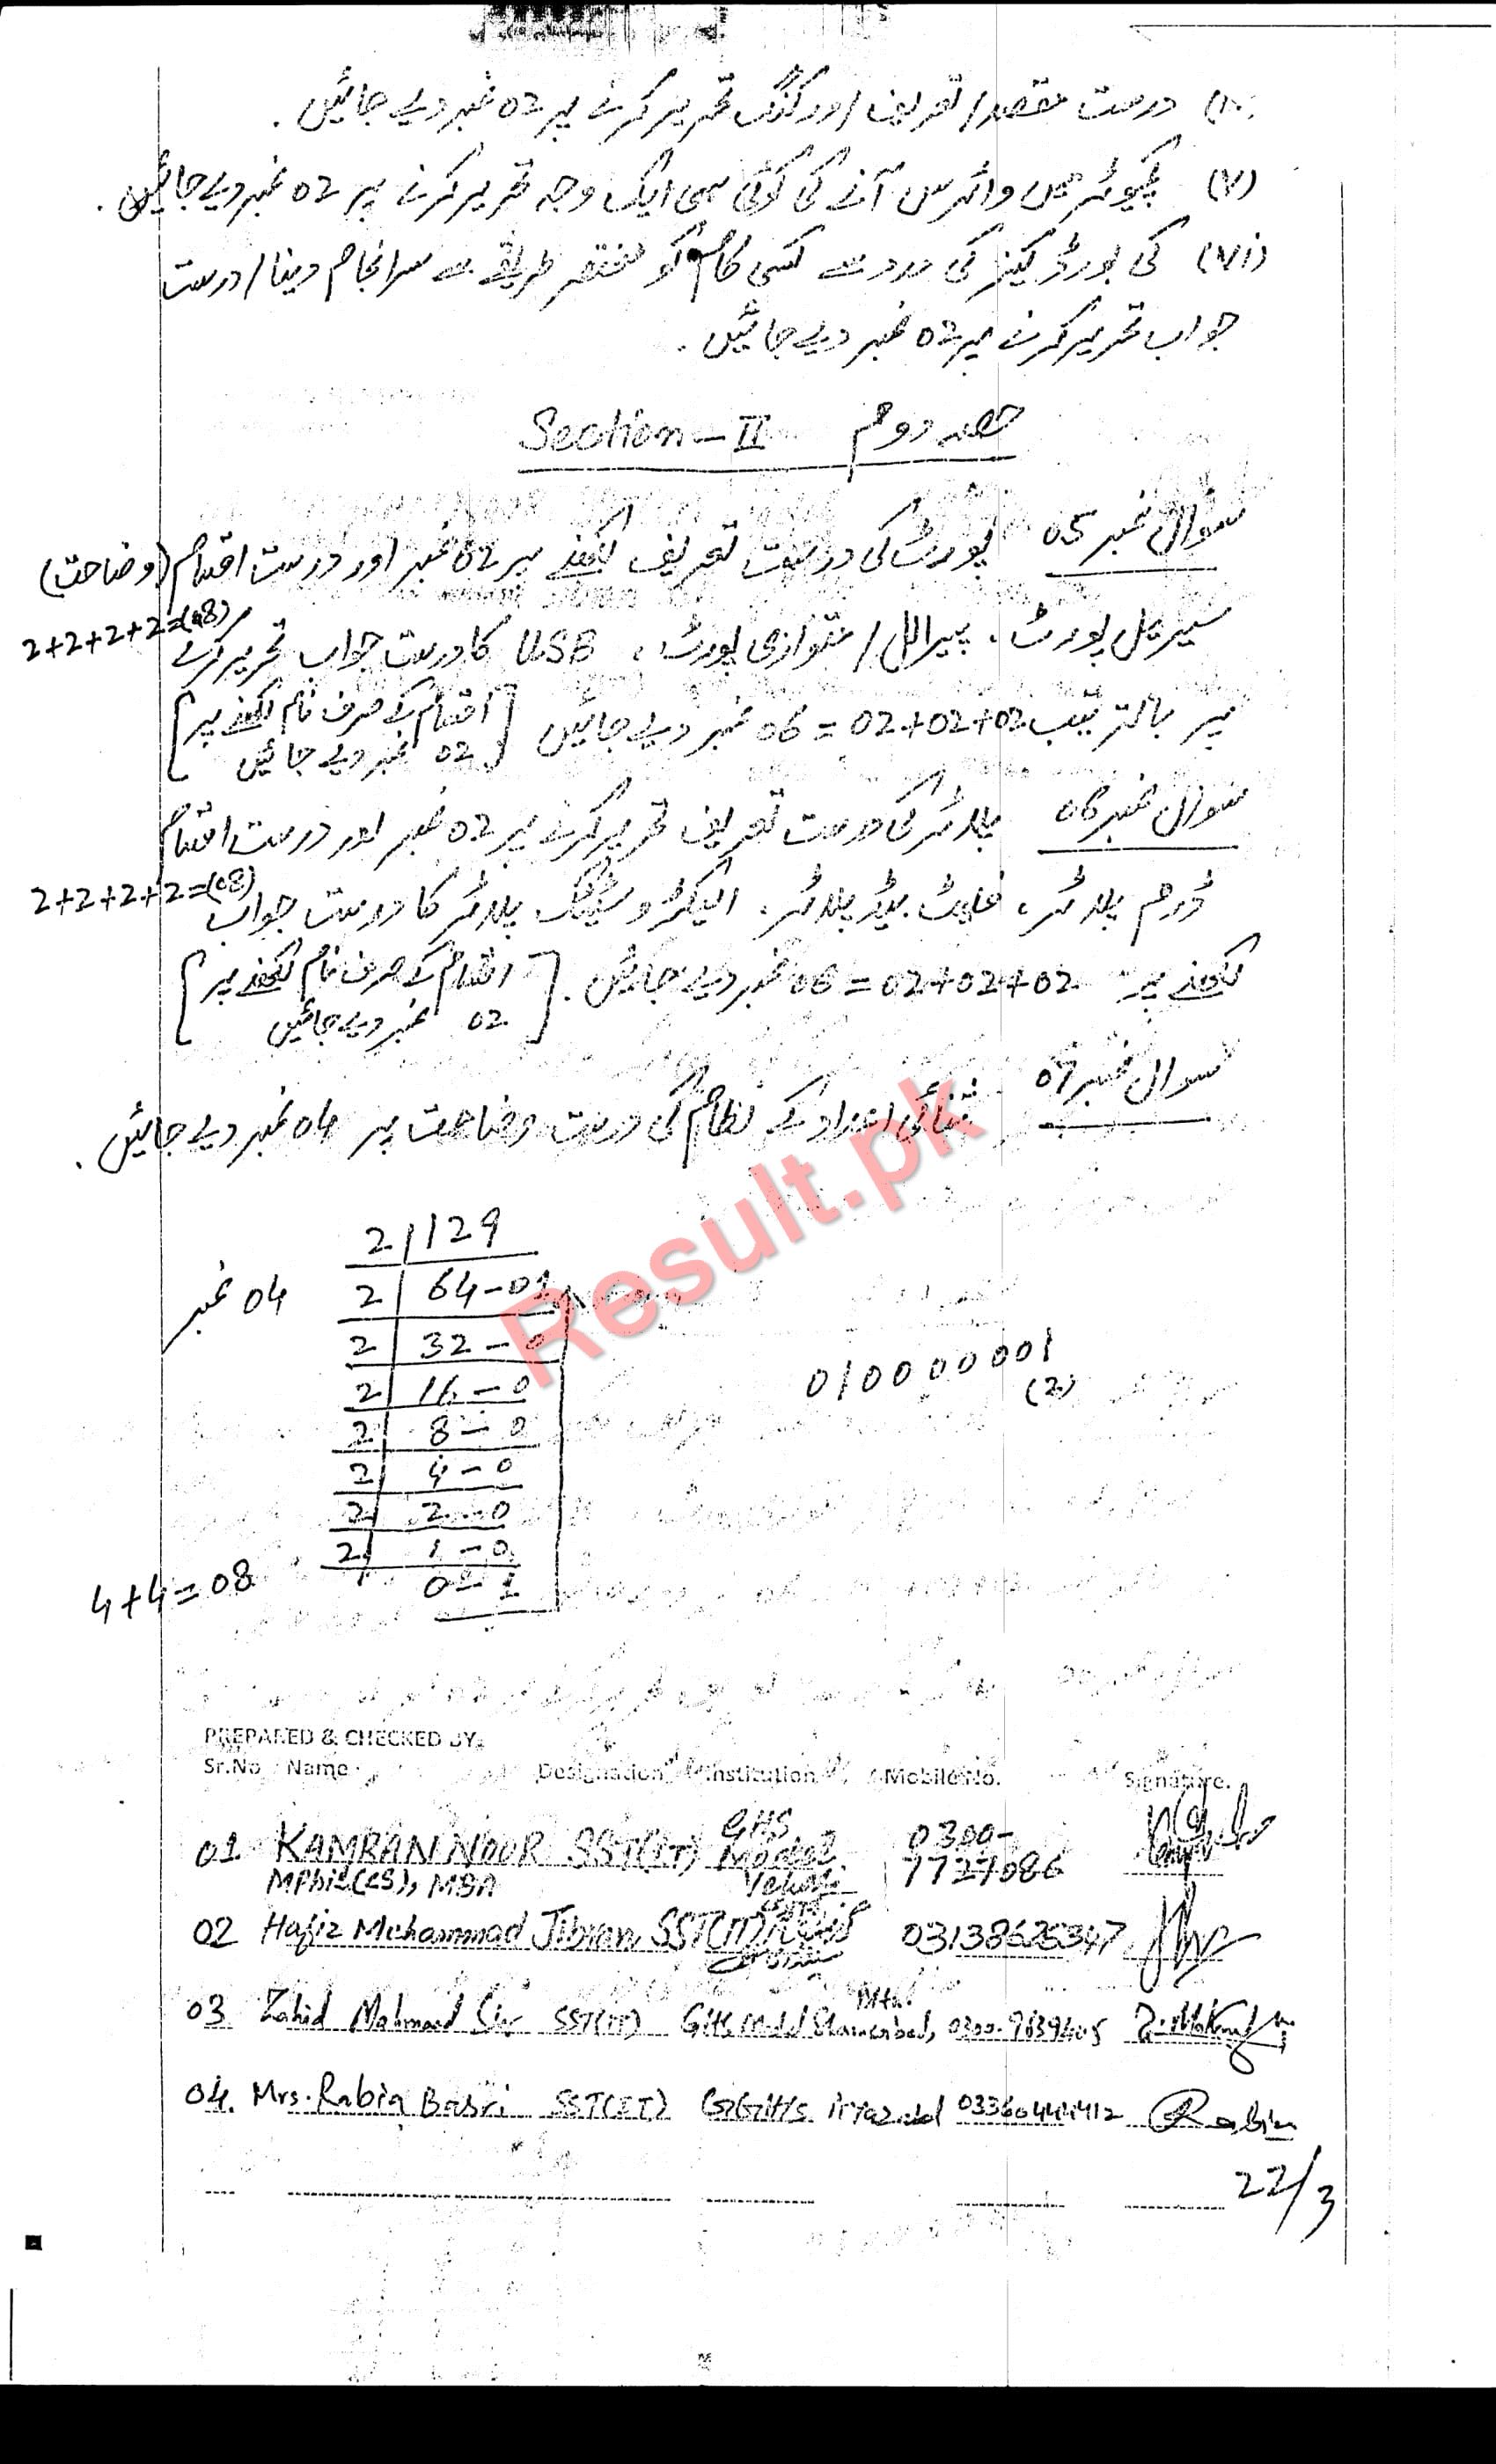 درست مقصد/ تعریف/ ورکنگ تحریر کرنے پر 02 نمبر دیے جائیں۔
(v) کمپیوٹر میں وائرس آنے کی کوئی سی ایک وجہ تحریر کرنے پر 02 نمبر دیے جائیں۔
(vi) کی بورڈ کیز کی مدد سے کسی کام کو مختصر طریقے سے سرانجام دینا/ درست
جواب تحریر کرنے پر 02 نمبر دیے جائیں۔
حصہ دوم Section-II
سوال نمبر 05 پورٹ کی درست تعریف لکھنے پر 02 نمبر اور درست اقسام (وضاحت)
سیریل پورٹ، پیرالل/ متوازی پورٹ، USB کا درست جواب تحریر کرنے 2+2+2+2=(08)
پر بالترتیب 02+02+02 = 06 نمبر دیے جائیں [اقسام کے صرف نام لکھنے پر
02 نمبر دیے جائیں]
سوال نمبر 06 پلاٹر کی درست تعریف تحریر کرنے پر 02 نمبر اور درست اقسام
ڈرم پلاٹر، فلیٹ بیڈ پلاٹر، الیکٹروسٹیٹک پلاٹر کا درست جواب 2+2+2+2=(08)
لکھنے پر 02+02+02 = 06 نمبر دیے جائیں۔ [اقسام کے صرف نام لکھنے پر
02 نمبر دیے جائیں]
سوال نمبر 07 ثنائی اعداد کے نظام کی درست وضاحت پر 04 نمبر دیے جائیں۔
2 | 129
04 نمبر 2 | 64 – 01
2 | 32 – 0
2 | 16 – 0
010000001
(2)
2 | 8 – 0
2 | 4 – 0
2 | 2 – 0
2 | 1 – 0
0 – 1
4+4=08
Result.pk
PREPARED & CHECKED BY:
Sr.No Name Designation Institution Mobile No. Signature.
01 KAMRAN NOOR SST(IT) GHS Model 0300-
MPhil(CS), MBA 7727086
02 Hafiz Muhammad Jibran SST(IT)
03 Zahid Mahmood SST(IT) GHS
04. Mrs. Rabia Basri SST(IT) Rabia
22/3